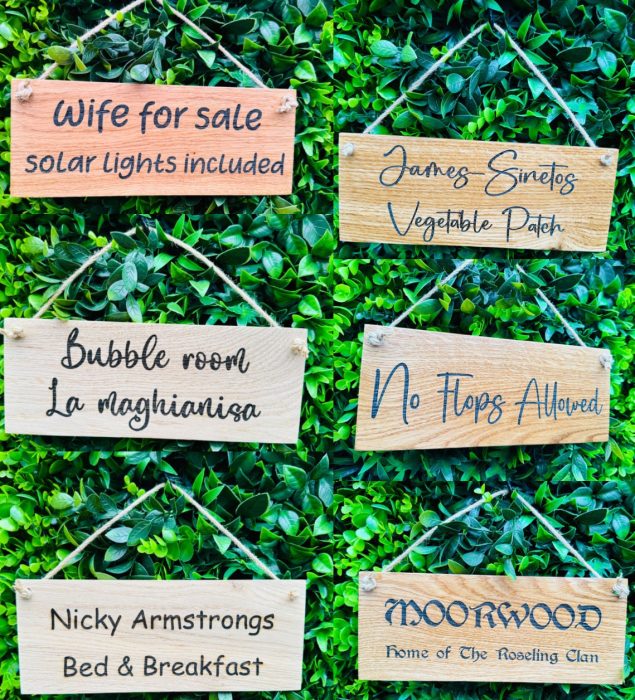 Wife for sale
solar lights included
James-Sinetos
Vegetable Patch
Bubble room
La maghianisa
No Flops Allowed
Nicky Armstrongs
Bed & Breakfast
MOORWOOD
Home of The Roseling Clan